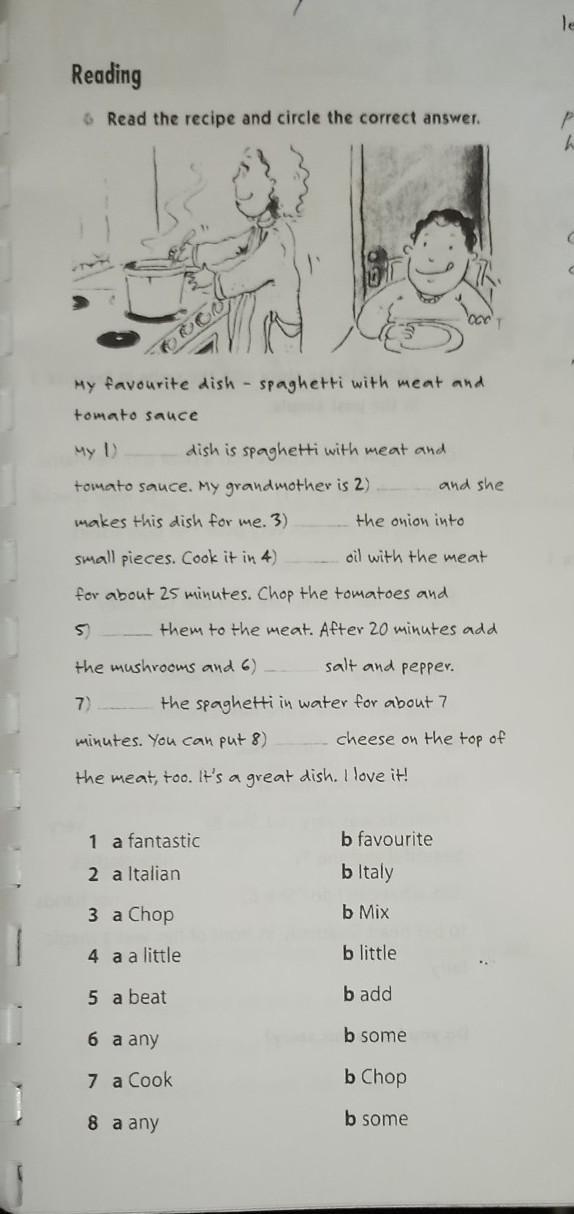 Reading
6 Read the recipe and circle the correct answer.
My favourite dish - spaghetti with meat and
tomato sauce
My 1) ______ dish is spaghetti with meat and
tomato sauce. My grandmother is 2) ______ and she
makes this dish for me. 3) ______ the onion into
small pieces. Cook it in 4) ______ oil with the meat
for about 25 minutes. Chop the tomatoes and
5) ______ them to the meat. After 20 minutes add
the mushrooms and 6) ______ salt and pepper.
7) ______ the spaghetti in water for about 7
minutes. You can put 8) ______ cheese on the top of
the meat, too. It's a great dish. I love it!
1 a fantastic b favourite
2 a Italian b Italy
3 a Chop b Mix
4 a a little b little
5 a beat b add
6 a any b some
7 a Cook b Chop
8 a any b some